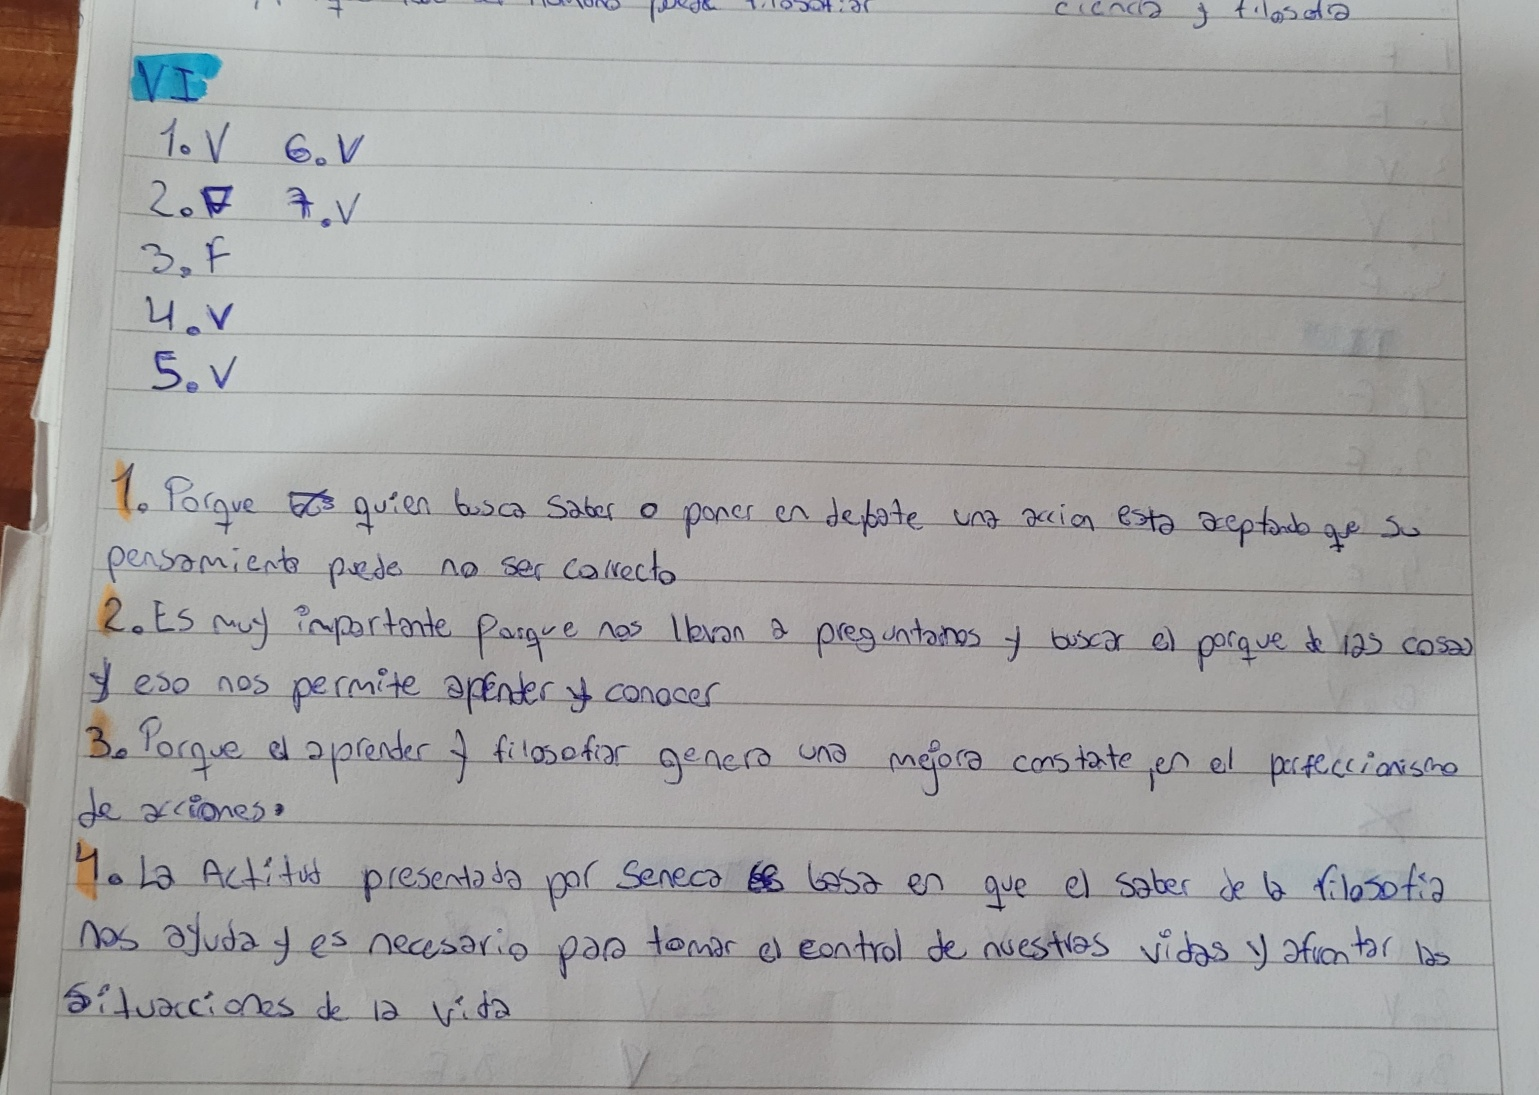 puede filosofiar ciencia y filosofia
VI
1. V 6. V
2. 7. V
3. F
4. V
5. V
1. Porque quien busca saber o poner en debate una accion esta aceptando que su
pensamiento puede no ser correcto
2. Es muy importante Porque nos llevan a preguntarnos y buscar el porque de las cosas
y eso nos permite aprender y conocer
3. Porque el aprender y filosofiar genera una mejora constate, en el perfeccionismo
de acciones.
4. La Actitud presentada por Seneca basa en que el saber de la filosofia
nos ayuda y es necesario para tomar el control de nuestras vidas y afrontar las
situacciones de la vida